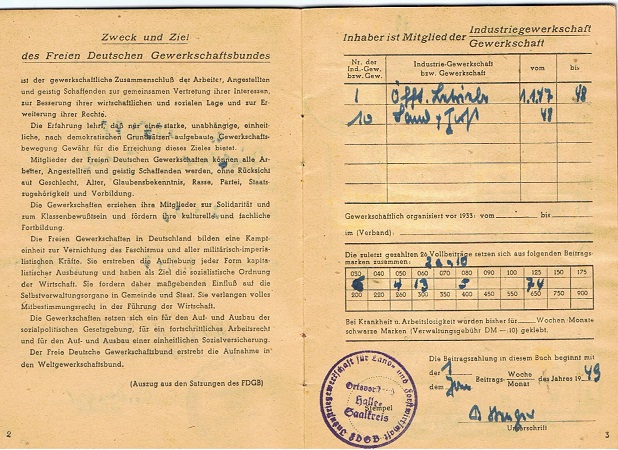 Zweck und Ziel
des Freien Deutschen Gewerkschaftsbundes
ist der gewerkschaftliche Zusammenschluß der Arbeiter, Angestellten
und geistig Schaffenden zur gemeinsamen Vertretung ihrer Interessen,
zur Besserung ihrer wirtschaftlichen und sozialen Lage und zur Er-
weiterung ihrer Rechte.
Die Erfahrung lehrt, daß nur eine starke, unabhängige, einheit-
liche, nach demokratischen Grundsätzen aufgebaute Gewerkschafts-
bewegung Gewähr für die Erreichung dieses Zieles bietet.
Mitglieder der Freien Deutschen Gewerkschaften können alle Ar-
beiter, Angestellten und geistig Schaffenden werden, ohne Rücksicht
auf Geschlecht, Alter, Glaubensbekenntnis, Rasse, Partei, Staats-
zugehörigkeit und Vorbildung.
Die Gewerkschaften erziehen ihre Mitglieder zur Solidarität und
zum Klassenbewußtsein und fördern ihre kulturelle und fachliche
Fortbildung.
Die Freien Gewerkschaften in Deutschland bilden eine Kampf-
einheit zur Vernichtung des Faschismus und aller militärisch-imperia-
listischen Kräfte. Sie erstreben die Aufhebung jeder Form kapita-
listischer Ausbeutung und haben als Ziel die sozialistische Ordnung
der Wirtschaft. Sie fordern daher maßgebenden Einfluß auf die
Selbstverwaltungsorgane in Gemeinde und Staat. Sie verlangen volles
Mitbestimmungsrecht in der Führung der Wirtschaft.
Die Gewerkschaften setzen sich ein für den Auf- und Ausbau der
sozialpolitischen Gesetzgebung, für ein fortschrittliches Arbeitsrecht
und für den Auf- und Ausbau einer einheitlichen Sozialversicherung.
Der Freie Deutsche Gewerkschaftsbund erstrebt die Aufnahme in
den Weltgewerkschaftsbund.
(Auszug aus den Satzungen des FDGB)
2
Inhaber ist Mitglied der Industriegewerkschaft
Gewerkschaft
Nr. der Ind.-Gew. bzw. Gew. Industrie-Gewerkschaft bzw. Gewerkschaft vom bis
1 Öfftl. Betriebe 1.1.47 48
10 Land u. Forst 48
Gewerkschaftlich organisiert vor 1933: vom bis
im (Verband):
Die zuletzt gezahlten 26 Vollbeiträge setzen sich aus folgenden Beitrags-
marken zusammen:
030 040 050 060 070 080 090 100 125 150 175
6 4 13 5 74
200 250 300 350 400 450 500 550 650 750 900
Bei Krankheit u. Arbeitslosigkeit wurden bisher für Wochen/Monate
schwarze Marken (Verwaltungsgebühr DM —.10) geklebt.
Die Beitragszahlung in diesem Buch beginnt mit
der 1 Woche
dem Beitrags- Monat des Jahres 1949
Industriegewerkschaft für Land- und Forstwirtschaft
Ortsvorst
Halle-
Saalkreis
FDGB
Stempel
Unterschrift
3